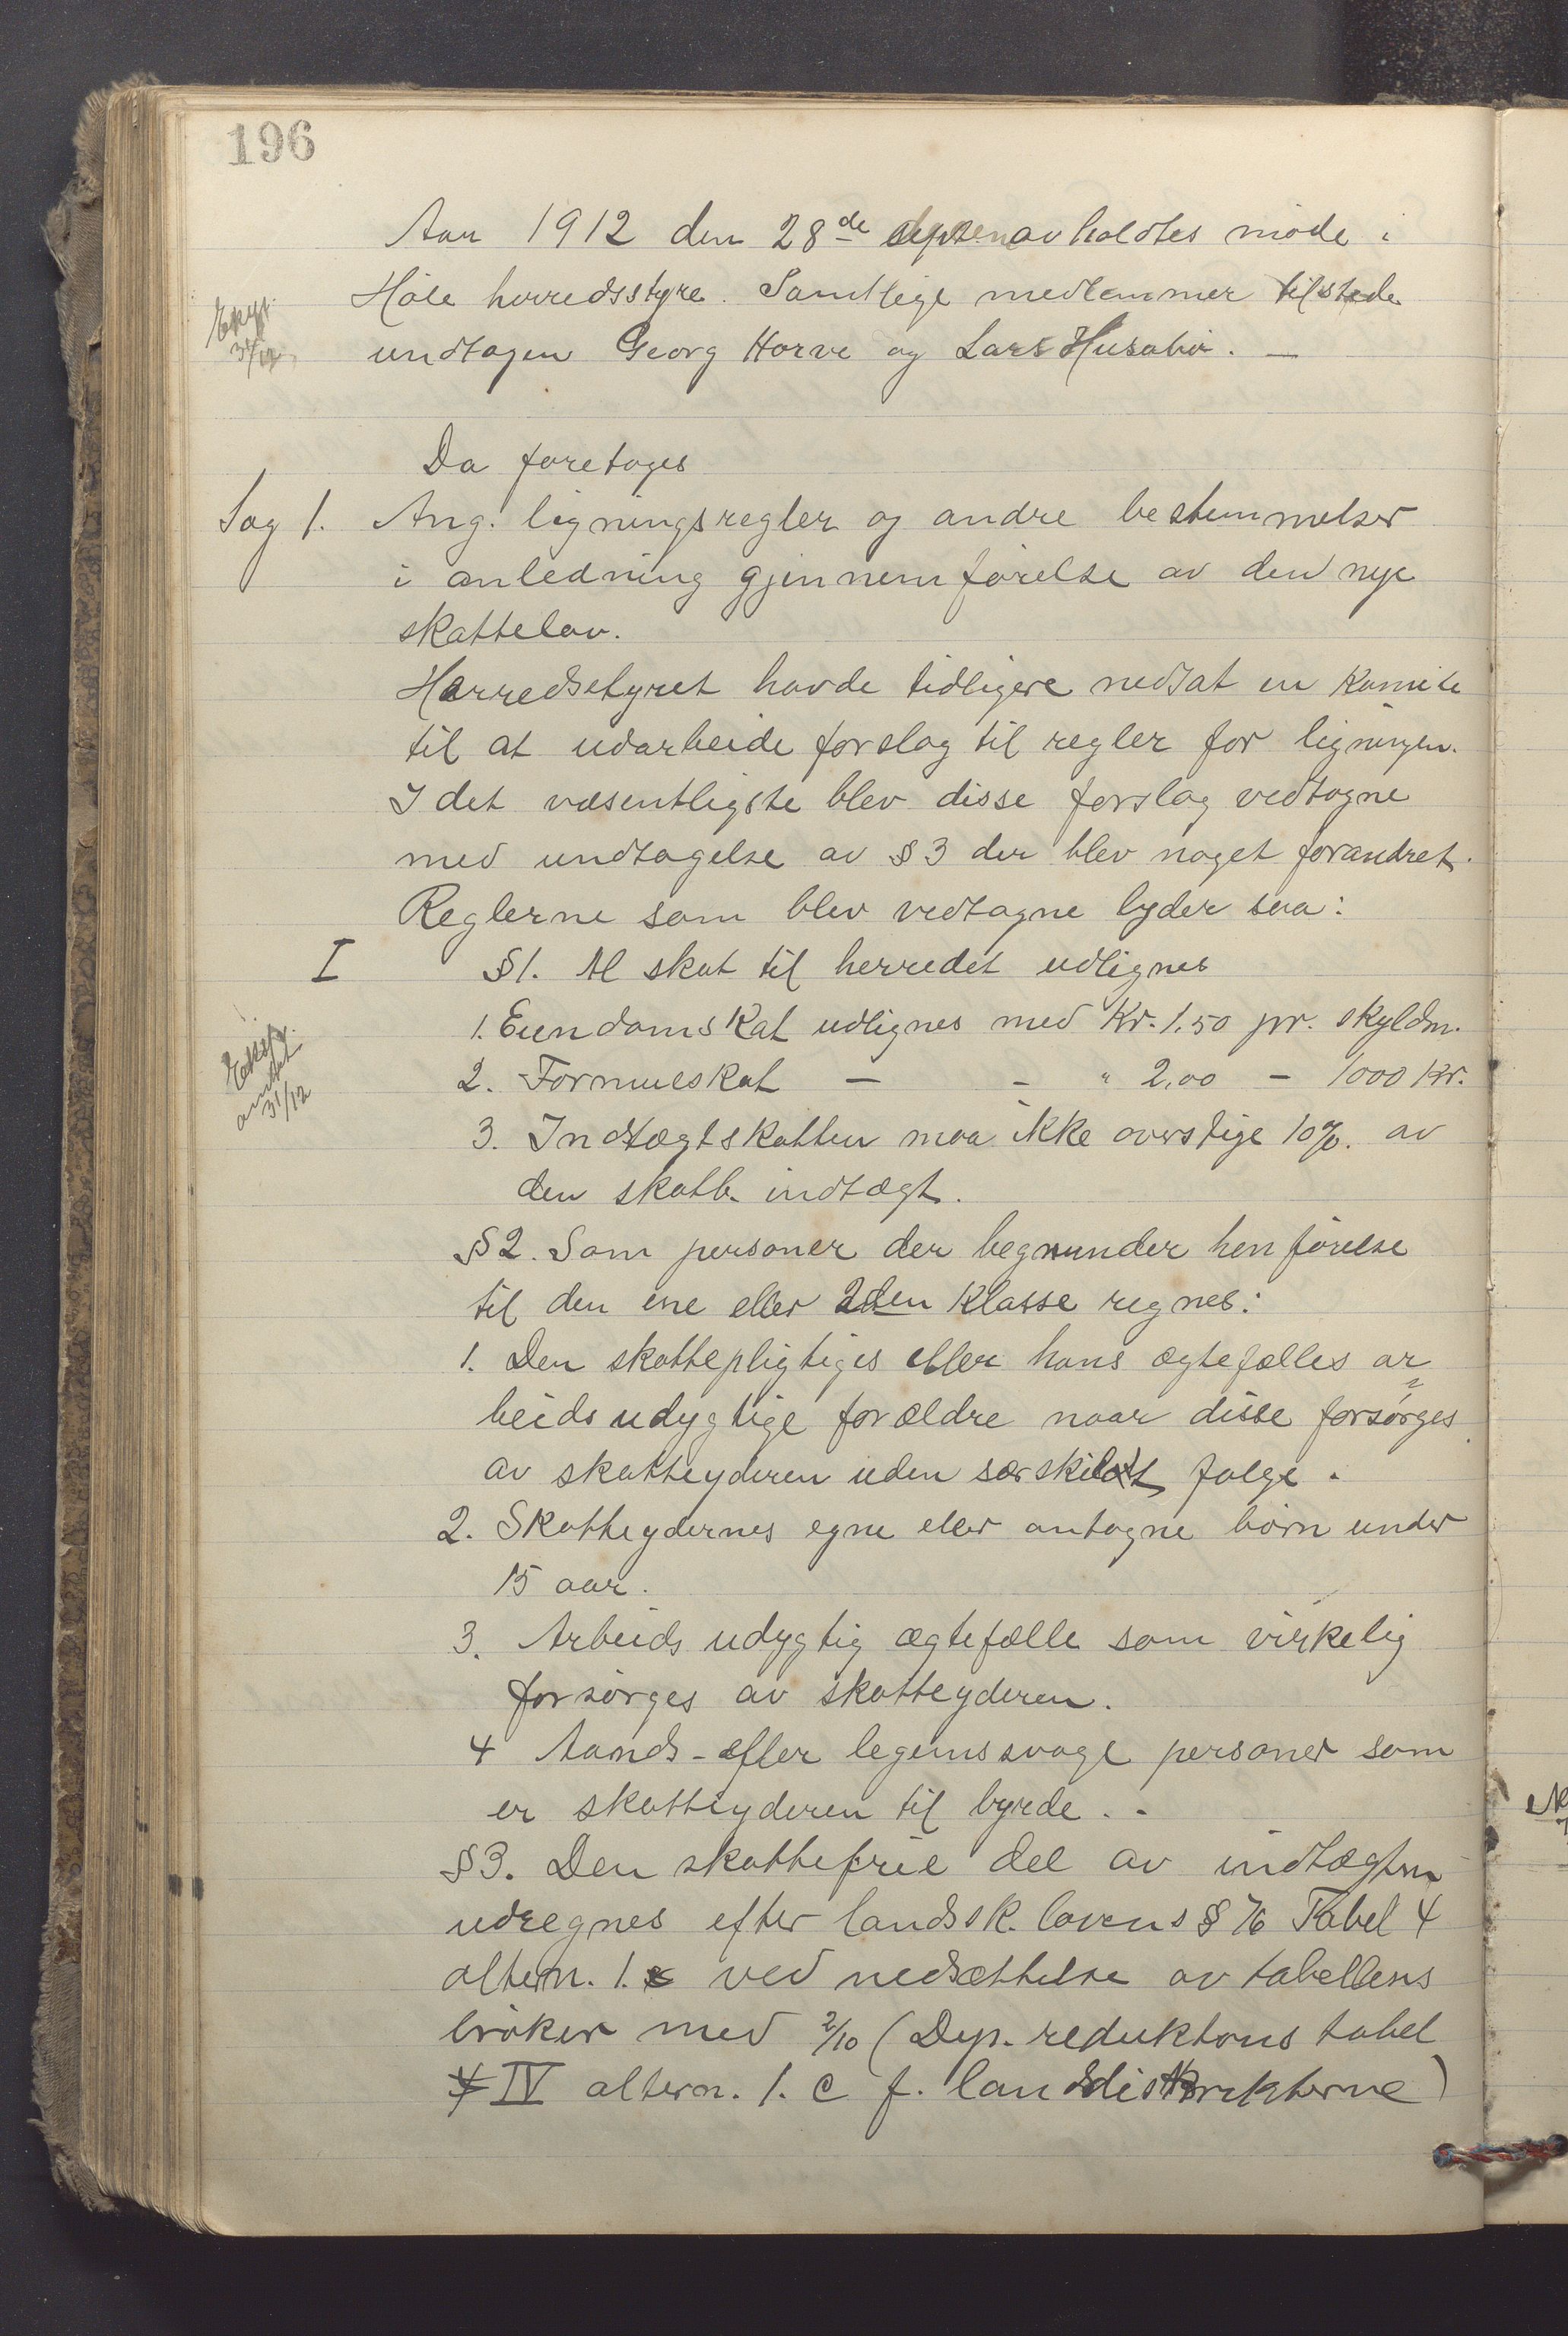 196
Aar 1912 den 28de avholdtes møde i
Høle herredsstyre. Samtlige medlemmer tilstede
undtagen Georg Horve og Lars Husabø. —
Ekspd.
31/12
Da foretoges
Sag 1. Ang. ligningsregler og andre bestemmelser
i anledning gjennemførelse av den nye
skattelov.
Herredsstyret havde tidligere nedsat en komite
til at udarbeide forslag til regler for ligningen.
I det væsentligste blev disse forslag vedtagne
med undtagelse av §3 der blev noget forandret.
Reglerne som blev vedtagne lyder saa:
I §1. Al skat til herredet udlignes
1. Eiendomskat udlignes med Kr. 1,50 pr. skyldm.
2. Formueskat — - " 2,00 - 1000 Kr.
31/12
3. Indtægtskatten maa ikke overstige 10%. av
den skattb. indtægt.
§2. Som personer der begrunder henførelse
til den ene eller 2den klasse regnes:
1. Den skattepligtiges eller hans ægtefælles ar
beidsudygtige forældre naar disse forsørges
av skatteyderen uden særskildt følge.
2. Skatteydernes egne eller antagne børn under
15 aar.
3. Arbeidsudygtig ægtefælle som virkelig
forsørges av skatteyderen.
4 Aands- eller legemssvage personer som
er skatteyderen til byrde. -
§3. Den skattefrie del av indtægten
udregnes efter landssk. lovens § 76 Tabel 4
altern. 1. c ved nedsættelse av tabellens
brøker med 2/10 (Dep. reduktions tabel
4 IV altern. 1. c f. landdistrikterne)